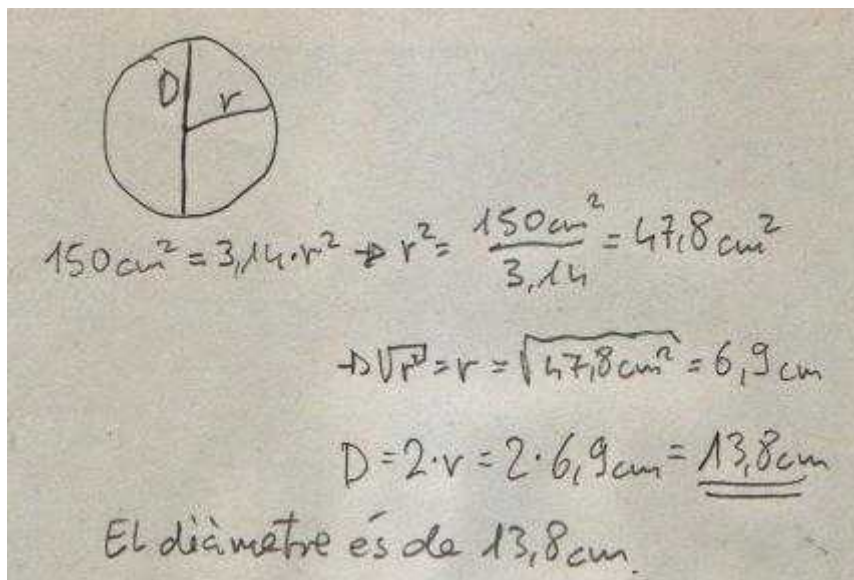 D r
150 cm² = 3,14·r² → r² = 150 cm² / 3,14 = 47,8 cm²
→ √r² = r = √47,8 cm² = 6,9 cm
D = 2·r = 2·6,9 cm = 13,8 cm
El diàmetre és de 13,8 cm.